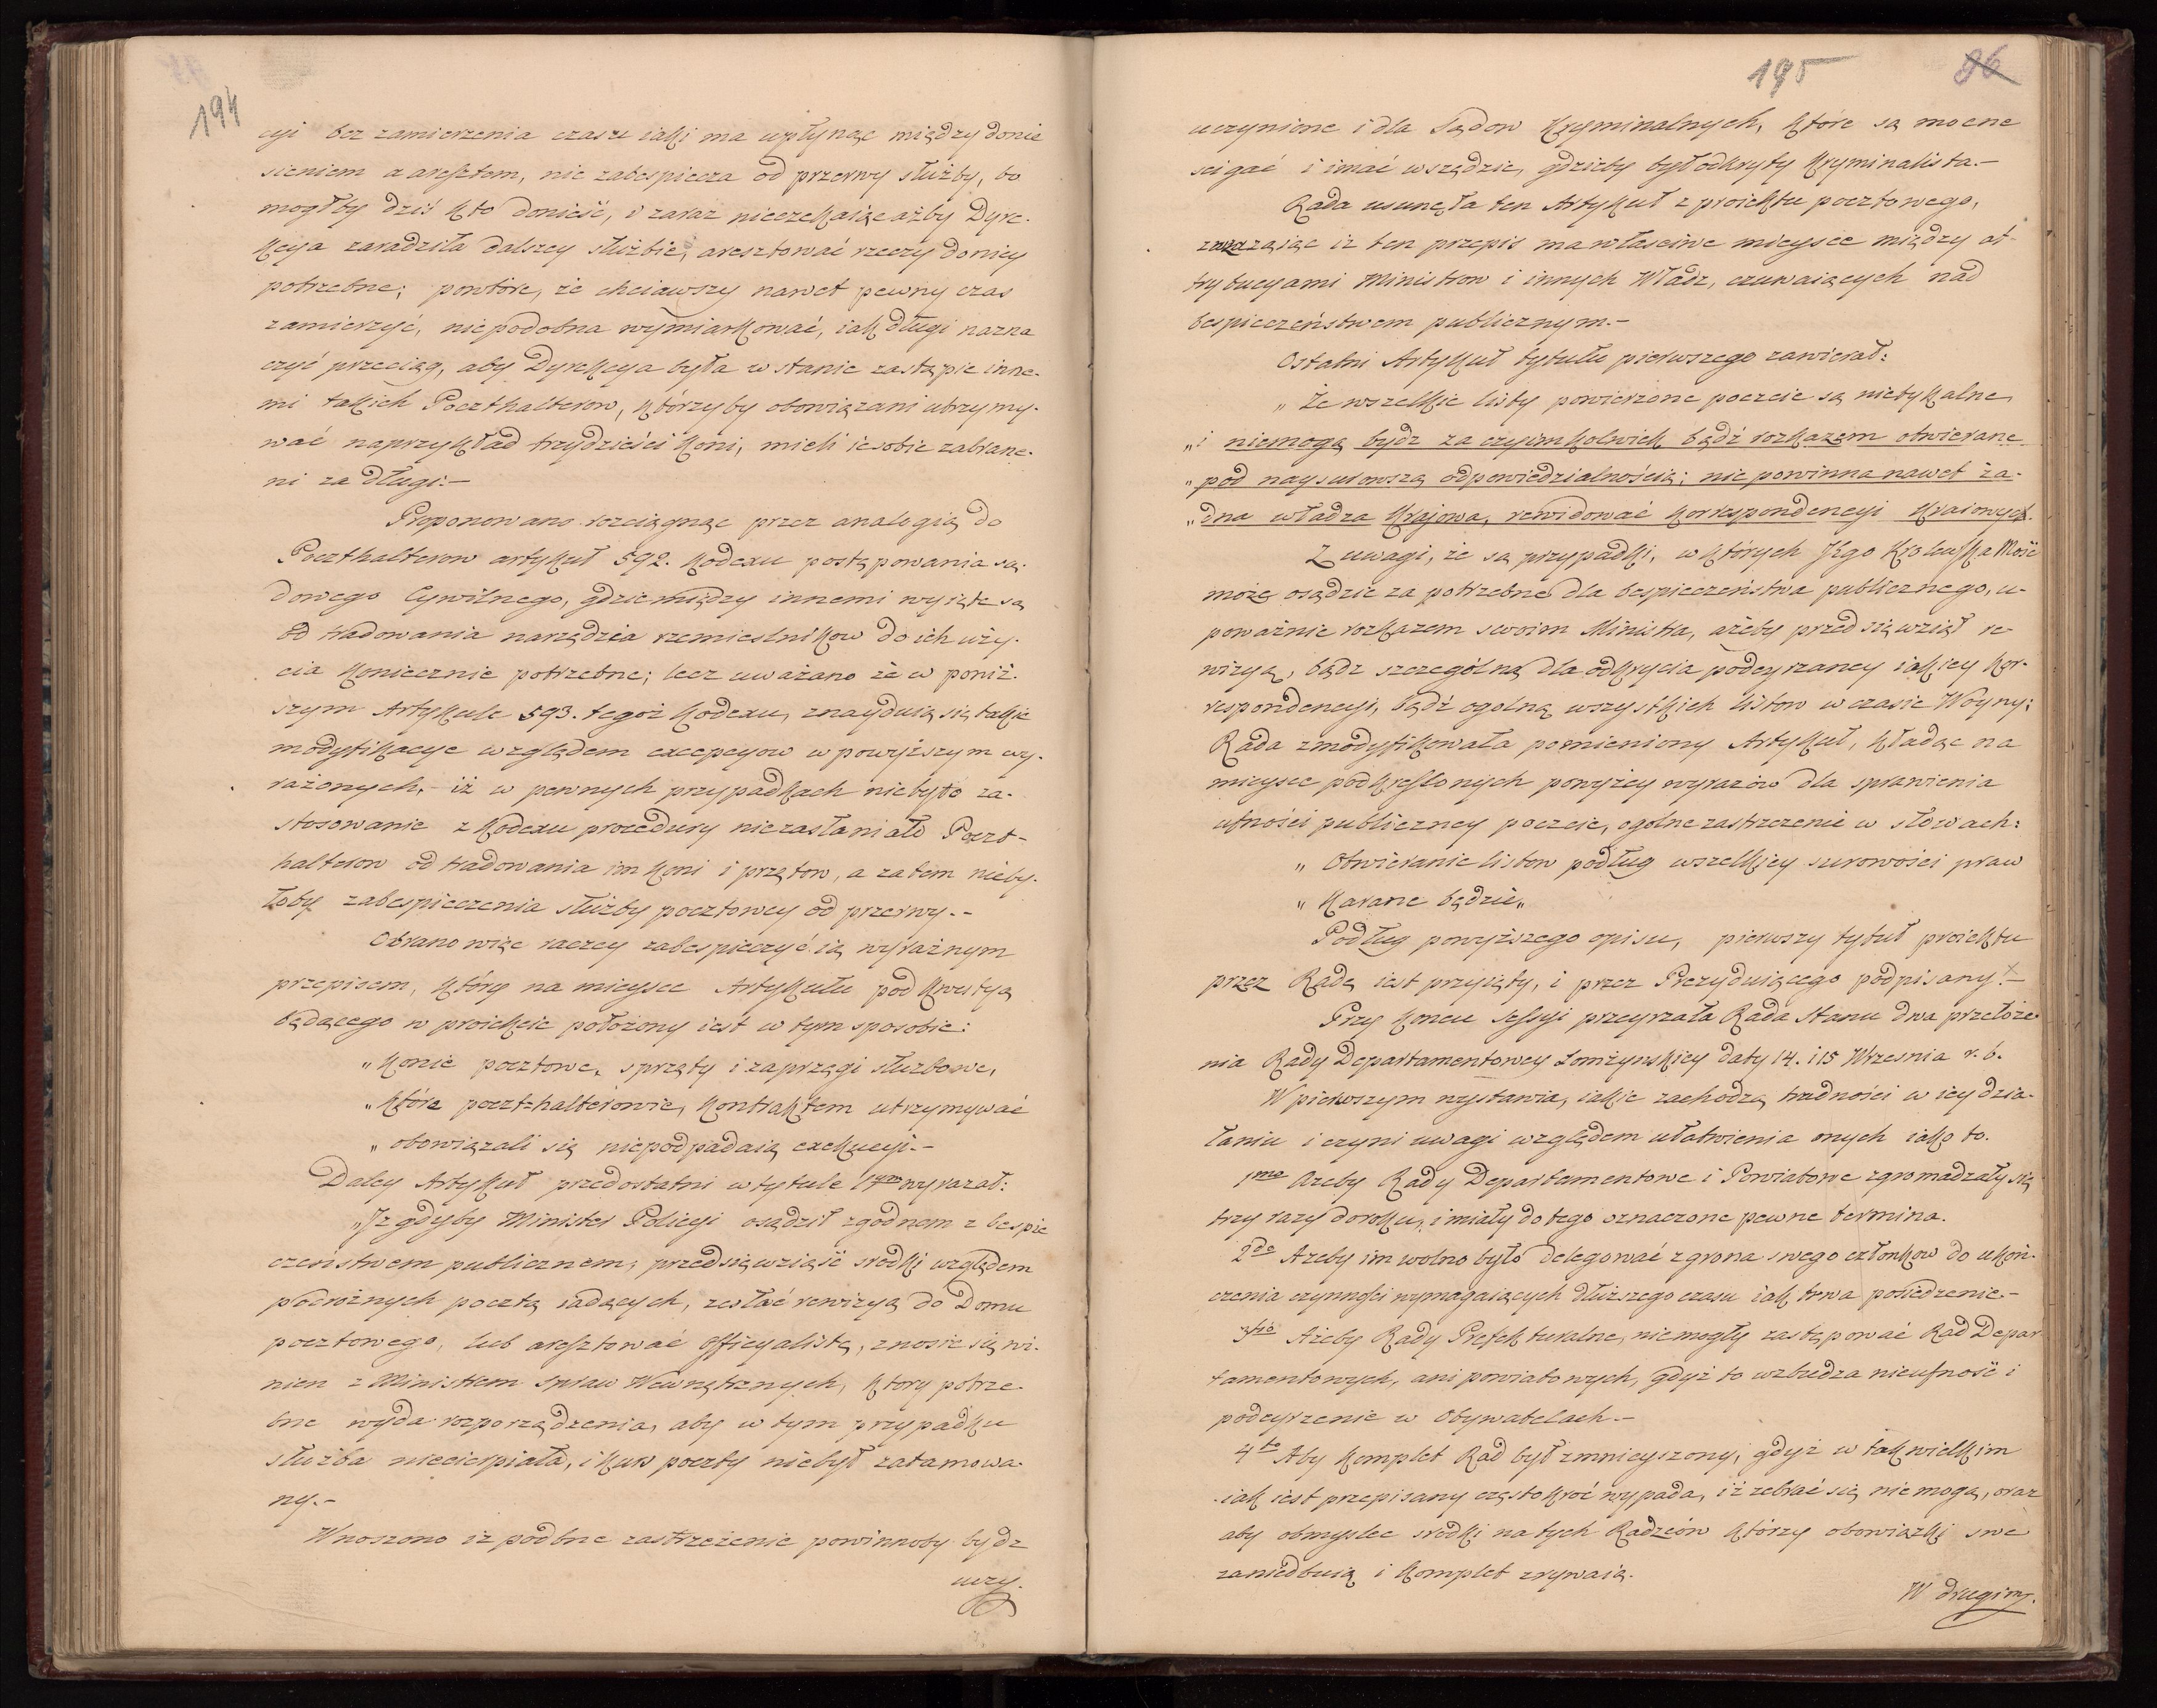 194
cyi bez zamierzenia czasu iaki ma upłynąc między donie
sieniem a aresztem, nie zabespiecza od przerwy służby, bo
mogłby dziś kto donieść, i zaraz nieczekaiąc ażby Dyre-
kcya zaradziła dalszey służbie, aresztować rzeczy do niey
potrzebne; powtóre, że chciawszy nawet pewny czas
zamierzyć, niepodobna wymiarkować, iak długi nazna
czyć przeciąg, aby Dyrekcya była w stanie zastąpic inne-
mi takich Poczthalterow, którzyby obowiązani utrzymy-
wać naprzykład trzydzieści koni, mieli ie sobie zabrane-
mi za długi.—
Proponowano rozciągnąc przez analogią do
Poczthalterow artykuł 592. kodexu postępowania są-
dowego Cywilnego, gdzie między innemi wyięte są
od tradowania narzędzia rzemieslnikow do ich uży-
cia koniecznie potrzebne; lecz uważano że w poniż-
szym Artykule 593. tegoż kodexu, znayduią się takie
modyfikacye względem excepcyow w powyższym wy-
rażonych, iż w pewnych przypadkach nie było za-
stosowanie z kodexu procedury niezasłaniało Poczt-
halterow od tradowania im koni i przętow, a zatem nieby-
łoby zabespieczenia służby pocztowey od przerwy.-
Obrano więc raczey zabespieczyć ią wyraźnym
przepisem, który na mieysce Artykułu pod kwestyą
będącego w proiekcie położony iest w tym sposobie:
„ Konie pocztowe, sprzęty i zaprzęgi służbowe,
„ które poczt=halterowie, kontraktem utrzymywać
„ obowiązali się niepodpadaią exekucyi.-
Daley Artykuł przedostatni w tytule 1ym wyrazał:
„Iż gdyby Minister Policyi osądził zgodnem z bespie
czeństwem publicznem, przedsięwziąść srodki względem
podrożnych pocztą iadących, zesłać rewizyą do Domu
pocztowego, lub aresztować Officyalistę, znosić się wi-
nien z Ministrem Spraw Wewnętrznych, ktory potrze-
bne wyda rozporządzenia, aby w tym przypadku
służba niecierpiała, i kurs poczty niebył zatamowa-
ny.-
Wnoszono iż podbne zastrzeżenie powinnoby bydz
uczy-
195
96
uczynione i dla Sądow Kryminalnych, które są mocne
scigać i imać wszędzie, gdzieby był odkryty Kryminalista.-
Rada usunęła ten Artykuł z proiektu pocztowego,
zważaiąc iż ten przepis ma właściwe mieysce między at-
trybucyami Ministrow i innych Władz, czuwaiących nad
bespieczeństwem publicznym.-
Ostatni Artykuł tytułu pierwszego zawierał:
„ Że wszelkie listy powierzone poczcie są nietykalne
„ i niemogą bydz za czyimkolwiek bądź rozkazem otwierane
„ pod naysurowszą odpowiedzialnością; nie powinna nawet ża-
„ dna władza Krajowa, rewidować korrespondencyi Kraiowych.
Z uwagi, że są przypadki, w których Jego Krolewska Mość
może osądzic za potrzebne dla bespieczeństwa publicznego, u-
poważnić rozkazem swoim Ministra, ażeby przedsięwziął re-
wizyą, bądz szczególną dla odkrycia podeyrzaney iakiey kor-
respondencyi, bądź ogolną wszystkich listow w czasie Woyny;
Rada zmodyfikowała pomieniony Artykuł, kładąc na
mieysce podkreślonych powyżey wyrazów dla sprawienia
ufności publiczney poczcie, ogolne zastrzezenie w słowach:
„ Otwieranie listow podług wszelkiey surowości praw
„ Karane będzie„
Podług powyższego opisu, pierwszy tytuł proiektu
przez Radę iest przyięty, i przez Prezyduiącego podpisany.-
Przy koncu Sessyi przeyrzała Rada Stanu dwa przełoże-
nia Rady Departamentowey Łomżynskiey daty 14. i 15 Wrzesnia r. b.
W pierwszym wystawia, iakie zachodzą trudności w iey dzia-
łaniu i czyni uwagi względem ułatwienia onych iako to.
1mo Ażeby Rady Departamentowe i Powiatowe zgromadzały się
trzy razy do roku, i miały do tego oznaczone pewne termina.
2do Ażeby im wolno było delegować z grona swego członkow do ukoń-
czenia czynności wymagaiących dłuższego czasu iak trwa posiedzenie.-
3tio Ażeby Rady Prefekturalne, niemogły zastępować Rad Depar-
tamentowych, ani powiatowych, gdyż to wzbudza nieufność i
podeyrzenie w Obywatelach.-
4to Aby Komplet Rad był zmnieyszony, gdyż w tak wielkim
iak iest przepisany częstokroć wypada, iż zebrać się nie mogą, oraz
aby obmyslec srodki na tych Radzców którzy obowiązki swe
zaniedbuią i Komplet zrywaią.
W drugim.